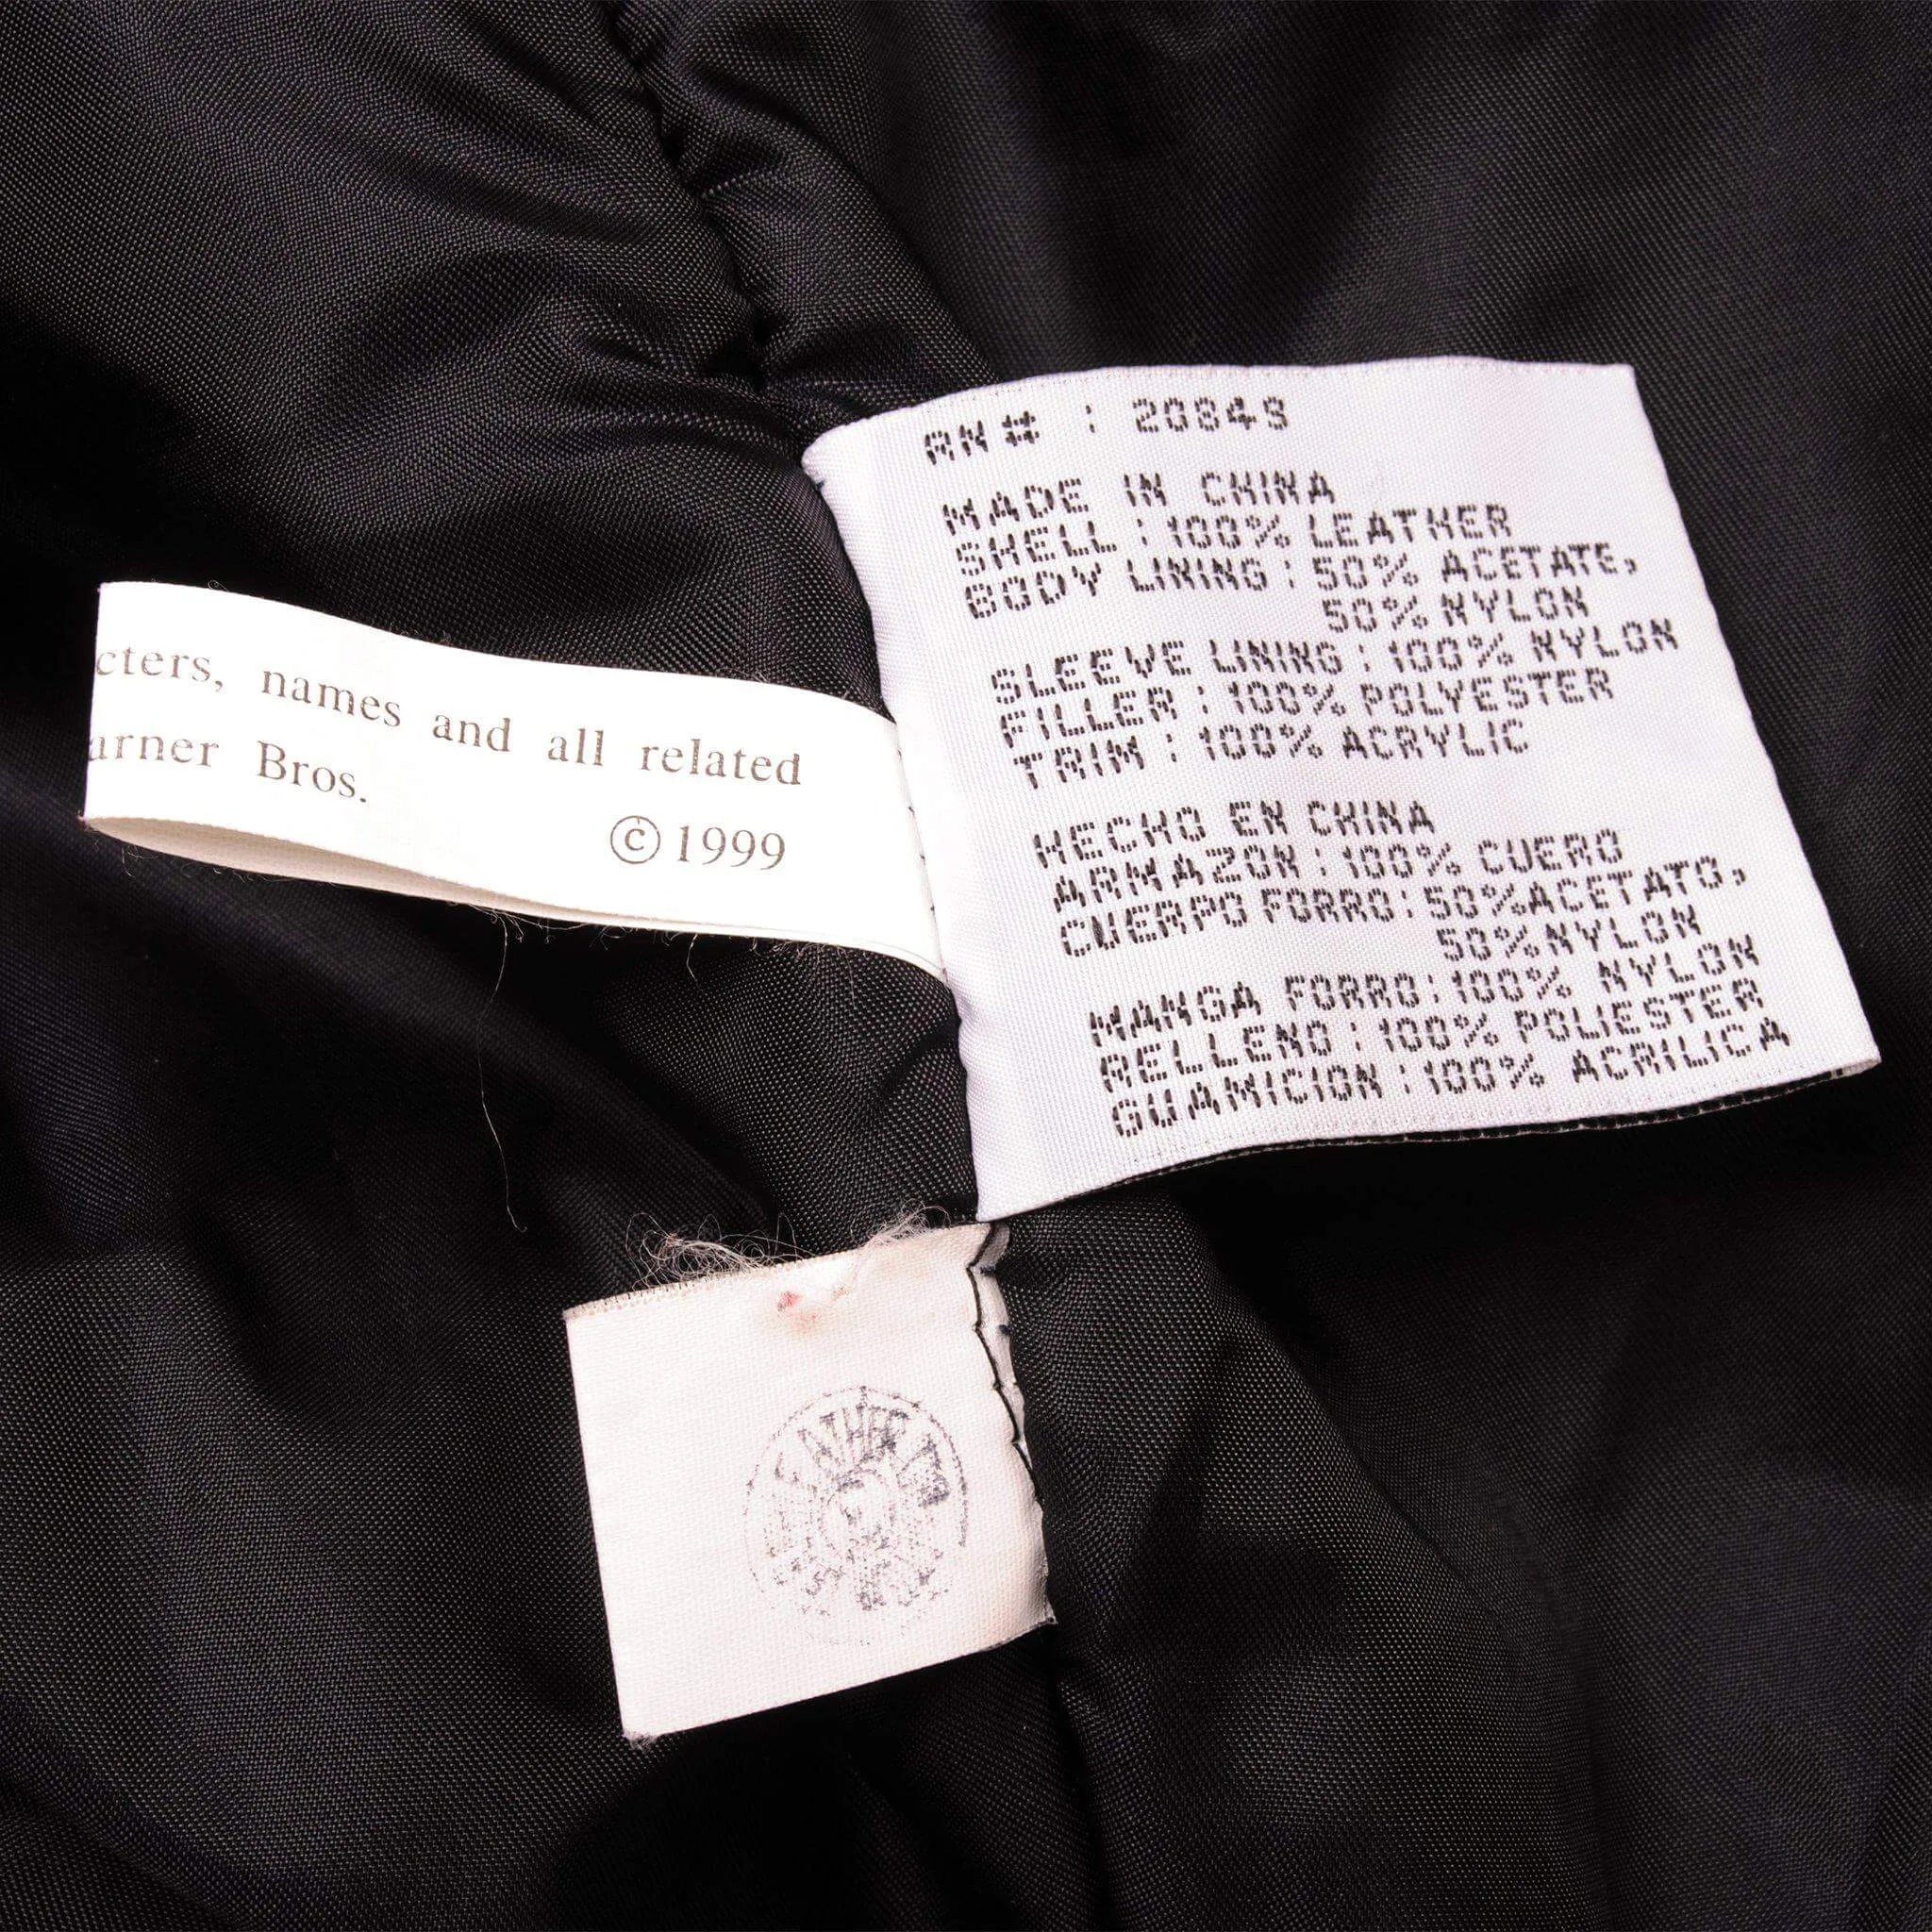 RN# : 20849
MADE IN CHINA
SHELL : 100% LEATHER
BODY LINING : 50% ACETATE,
50% NYLON
SLEEVE LINING : 100% NYLON
FILLER : 100% POLYESTER
TRIM : 100% ACRYLIC
HECHO EN CHINA
ARMAZON : 100% CUERO
CUERPO FORRO : 50% ACETATO,
50% NYLON
MANGA FORRO : 100% NYLON
RELLENO : 100% POLIESTER
GUAMICION : 100% ACRILICA
cters, names and all related
arner Bros.
© 1999
LEATHER